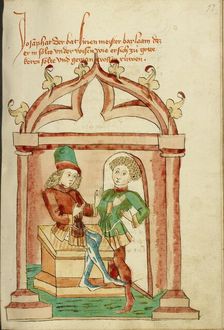 Josaphat der bat sinen meister barlaam dez
er in solte under wisen wie er sich zu gotte
keren solte vnd gewan grossen ruwen